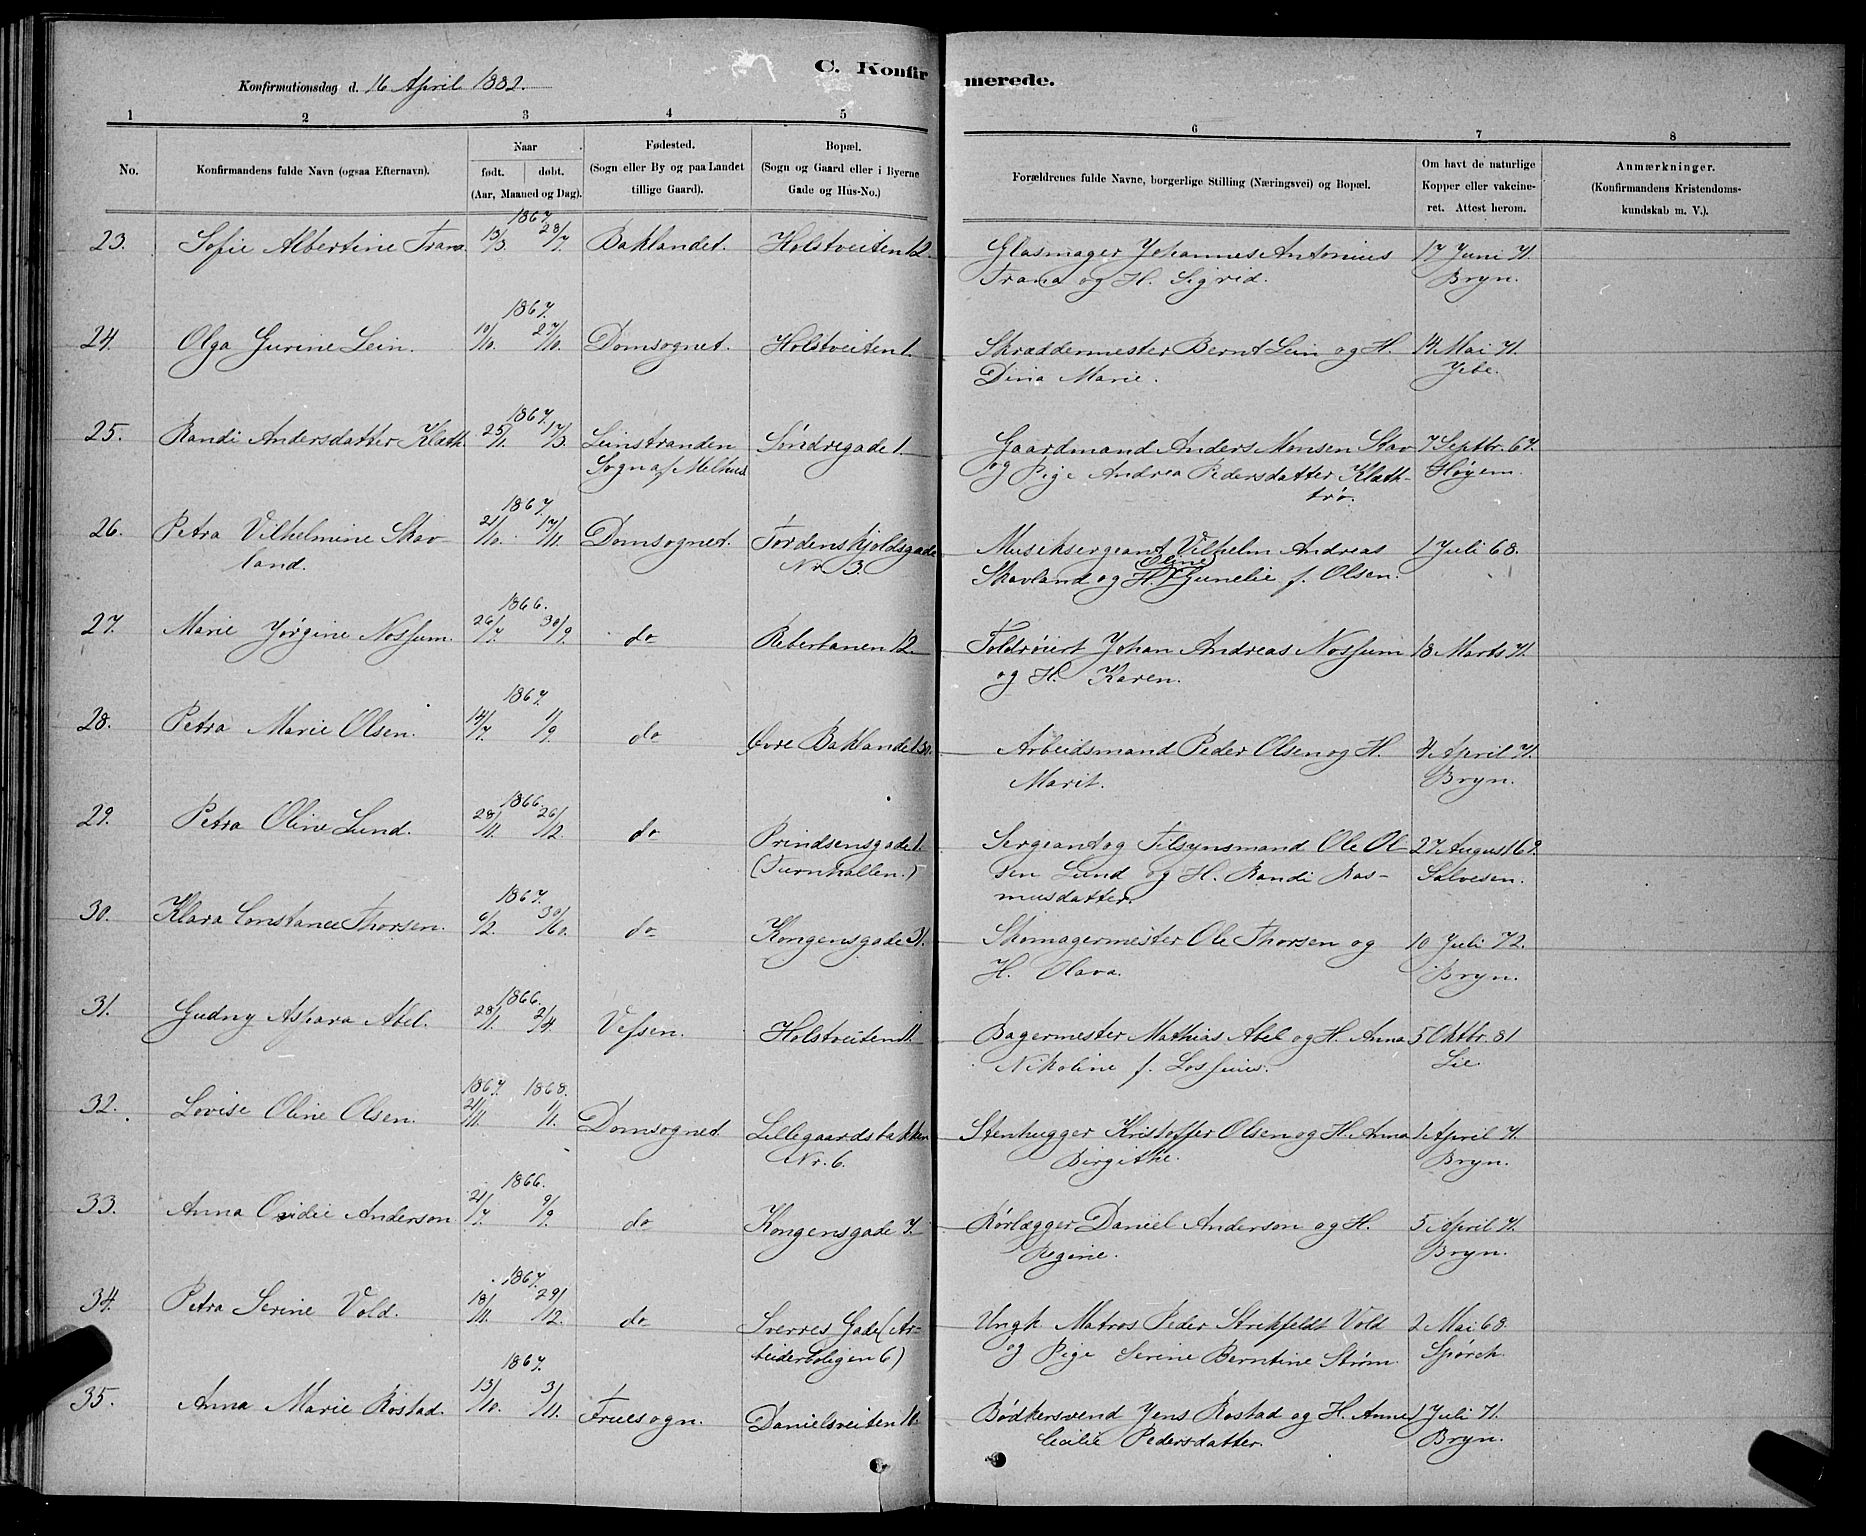 C. Konfirmerede.
Konfirmationsdag d. 16 April 1882.
1 2 3 4 5 6 7 8
No. Konfirmandens fulde Navn (ogsaa Efternavn). Naar født. døbt. (Aar, Maaned og Dag). Fødested. (Sogn eller By og paa Landet tillige Gaard). Bopæl. (Sogn og Gaard eller i Byerne Gade og Hus-No.) Forældrenes fulde Navne, borgerlige Stilling (Næringsvei) og Bopæl. Om havt de naturlige Kopper eller vakcineret. Attest herom. Anmærkninger. (Konfirmandens Kristendomskundskab m. V.).
1867.
23. Sofie Albertine Trana 13/3. 28/7. Baklandet. Holstveiten 12. Glasmager Johannes Antonius 17 Juni 71.
Trana og H. Sigrid. Bryn.
1867.
24. Olga Gurine Lein. 10/10. 27/10. Domsognet. Holstveiten 1. Skræddermester Bernt Lein og H. 14 Mai 71
Dina Marie. Jebe.
1867.
25. Randi Andersdatter Klæth. 25/1. 17/3. Leinstranden Søndregade 1. Gaardmand Anders Monsen Stav 7 Septbr. 67.
Sogn af Melhus og Pige Andrea Pedersdatter Klæth- Høyem.
trø.
1867.
26. Petra Vilhelmine Skav- 21/10. 17/11. Domsognet. Tordenskjoldsgade Musiksergeant Vilhelm Andreas 1 Juli 68.
land. Nr 3. Skavland og H. Oline Gunelie f. Olsen.
1866.
27. Marie Jørgine Nossum. 26/7. 30/9. do Reberbanen 12. Toldrøiert Johan Andreas Nossum 18 Marts 71.
og H. Karen.
1867.
28. Petra Marie Olsen. 14/7. 1/9. do Øvre Baklandet 30. Arbeidsmand Peder Olsen og H. 4 April 71.
Marit. Bryn.
1866.
29. Petra Oline Lund. 28/11. 26/12. do Prindsensgade 1. Sergeant og Tilsynsmand Ole Ol- 27 August 69.
(Turnhallen.) sen Lund og H. Randi Ras- Salvesen.
musdatter.
1867.
30. Klara Constance Thorsen. 6/2. 30/10. do Kongensgade 31. Skomagermester Ole Thorsen og 10 Juli 72.
H. Olava. Bryn.
1866.
31. Gudny Aspara Abel. 28/1. 2/4. Vefsen. Holstveiten 11. Bagermester Mathias Abel og H. Anna 5 Oktbr. 81
Nikoline f. Lossius. Lie.
1867. 1868.
32. Lovise Oline Olsen. 21/11. 1/1. Domsognet Lillegaardsbakken Stenhugger Kristoffer Olsen og H. Anna 1 April 71.
Nr. 6. Birgithe. Bryn.
1866.
33. Anna Ovidie Anderson 21/7. 9/9. do Kongensgade 7. Rørlægger Daniel Anderson og H. 5 April 71.
Regine. Bryn.
1867.
34. Petra Serine Vold. 18/11. 29/12. do Sverres Gade (Ar- Ungk. Matros Peder Strikfeldt Vold 2 Mai 68.
beiderboligen 6) og Pige Serine Berntine Strøm. Spørck.
1867.
35. Anna Marie Rostad. 13/10. 3/11. Fruesogn. Danielsveiten 10. Bødkersvend Jens Rostad og H. Anne 1 Juli 71.
Cecilie Pedersdatter. Bryn.